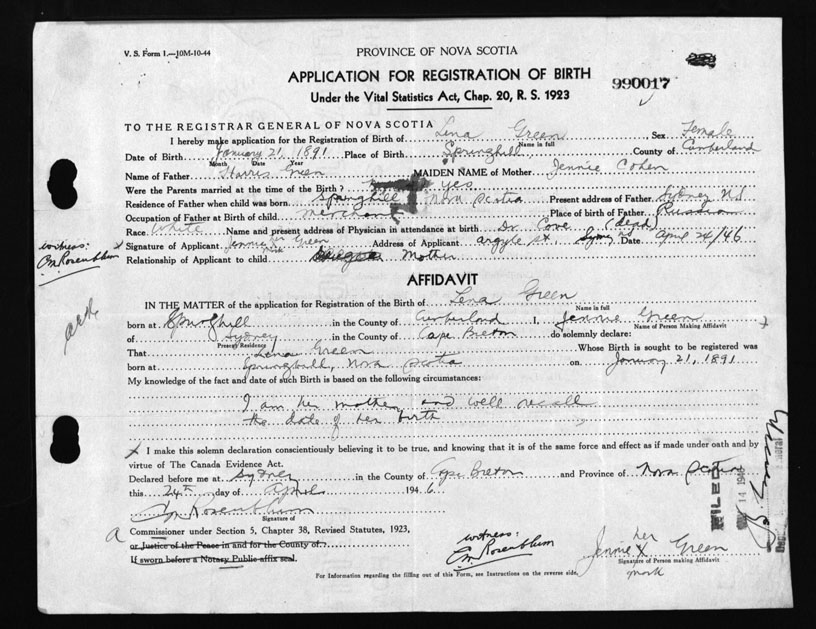 V. S. Form 1.—10M-10-44
PROVINCE OF NOVA SCOTIA
APPLICATION FOR REGISTRATION OF BIRTH
990017
Under the Vital Statistics Act, Chap. 20, R. S. 1923
TO THE REGISTRAR GENERAL OF NOVA SCOTIA
I hereby make application for the Registration of Birth of Lena Green Sex Female
Name in full
Date of Birth January 21, 1891 Place of Birth Springhill County of Cumberland
Month Date Year
Name of Father Harris Green MAIDEN NAME of Mother Jennie Cohen
Were the Parents married at the time of the Birth? yes
Residence of Father when child was born Springhill Nova Scotia Present address of Father Sydney NS
Occupation of Father at Birth of child merchant Place of birth of Father Russian
Race White Name and present address of Physician in attendance at birth Dr Cove (dead)
witness:
CM Rosenblum
x Signature of Applicant Jennie her Green Address of Applicant argyle st. Sydney NS Date April 24/46
Relationship of Applicant to child Mother
AFFIDAVIT
IN THE MATTER of the application for Registration of the Birth of Lena Green
Name in full
born at Springhill in the County of Cumberland I, Jennie Green
Name of Person Making Affidavit
of Sydney in the County of Cape Breton do solemnly declare:
Present Residence
That Lena Green Whose Birth is sought to be registered was
born at Springhill, Nova Scotia on January 21, 1891
My knowledge of the fact and date of such Birth is based on the following circumstances:
I am her mother and well recall
the date of her birth
x I make this solemn declaration conscientiously believing it to be true, and knowing that it is of the same force and effect as if made under oath and by
virtue of The Canada Evidence Act.
Declared before me at Sydney in the County of Cape Breton and Province of Nova Scotia
this 24th day of April 1946
CM Rosenblum
Signature of
A Commissioner under Section 5, Chapter 38, Revised Statutes, 1923,
or Justice of the Peace in and for the County of
If sworn before a Notary Public affix seal.
witness:
CM Rosenblum
Jennie her x Green
mark
Signature of Person making Affidavit
For Information regarding the filling out of this Form, see Instructions on the reverse side.
FILED
14 1946